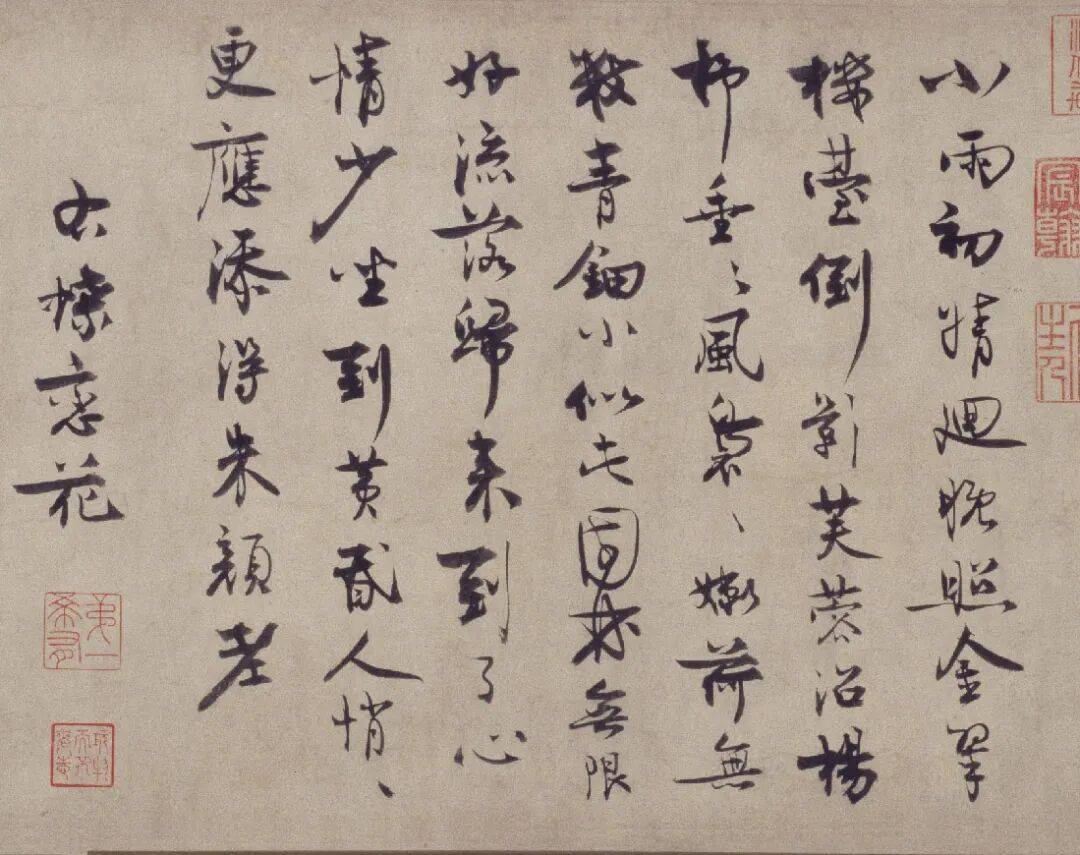 小雨初晴迴晚照金翠
樓臺倒影芙蓉沼楊
柳垂〻風裊〻嫩荷無
數青鈿小似此園林無限
好流落歸来到了心
情少坐到黄昏人悄〻
更應添得朱顔老
右蝶戀花
第一希有